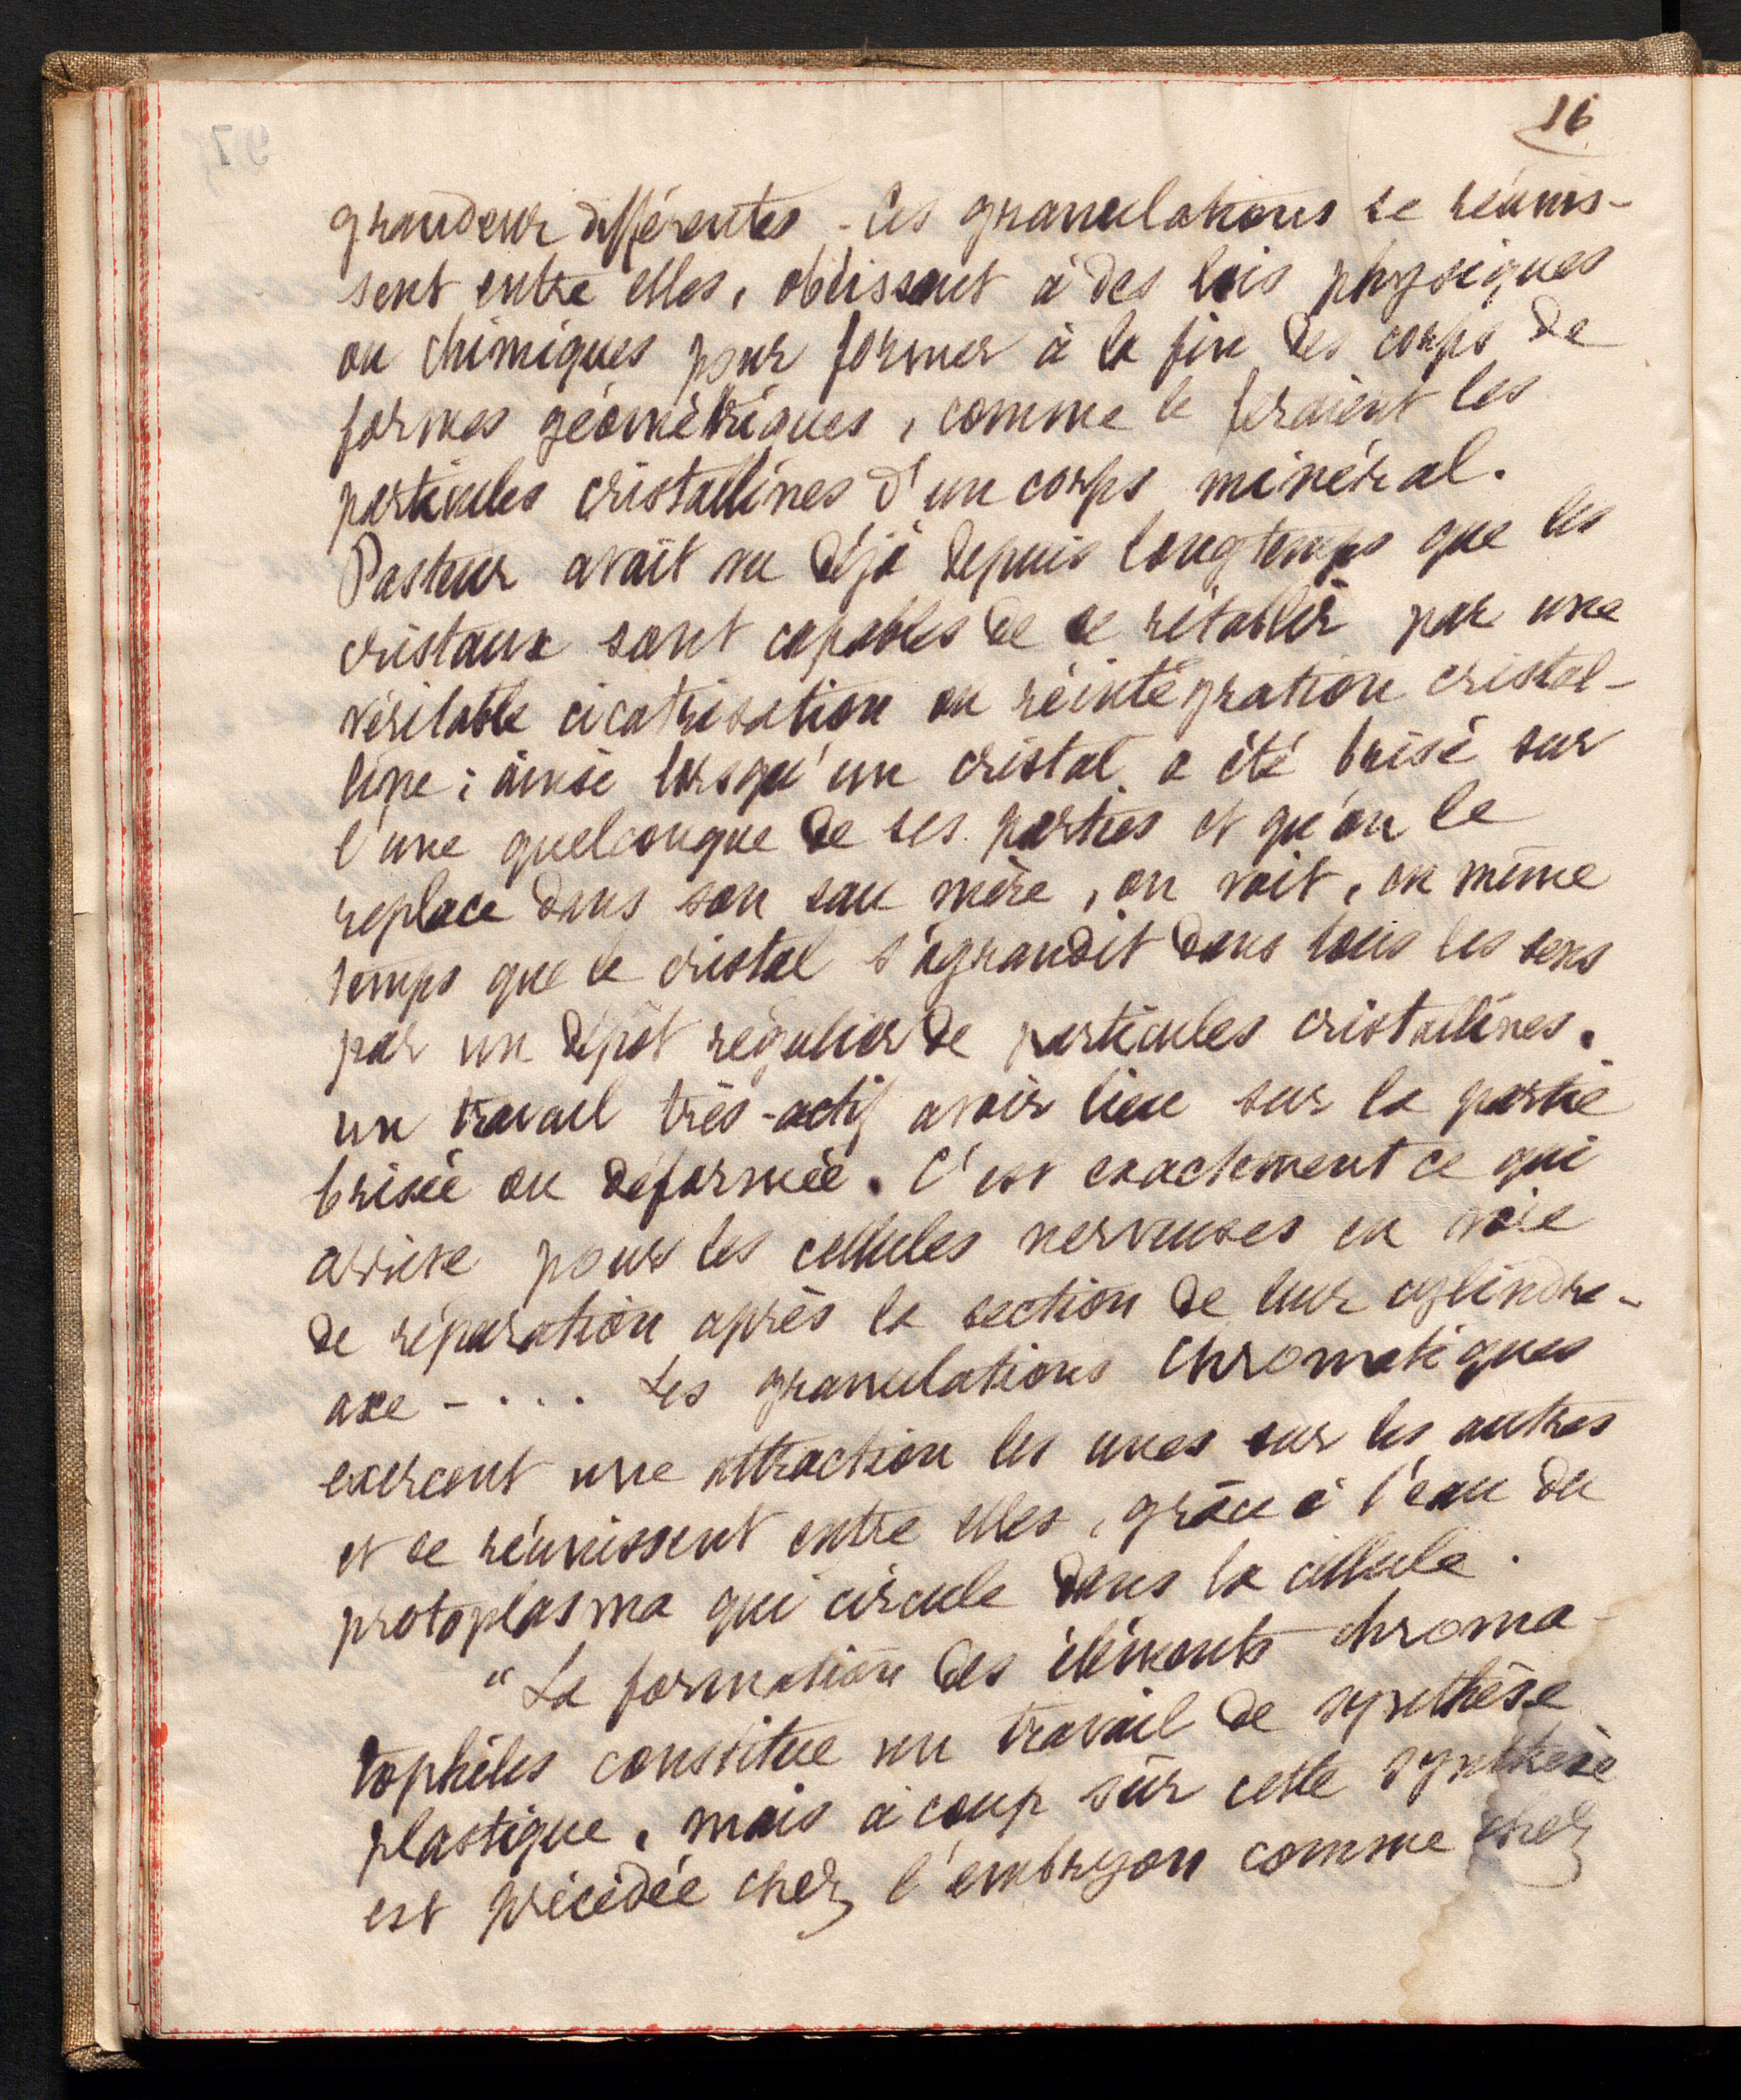 16
grandeur différentes - Ces granulations se réunis-
sent entre elles, obéissant à des lois physiques
ou chimiques pour former à la fin des corps de
formes géométriques, comme le feraient les
particules cristallines d'un corps minéral.
Pasteur avait vu déjà depuis longtemps que les
cristaux sont capables de se rétablir par une
véritable cicatrisation ou réintégration cristal-
line ; ainsi lorsqu'un cristal a été brisé sur
l'une quelconque de ses parties et qu'on le
replace dans son eau mère, on voit, en même
temps que le cristal s'agrandit dans tous les sens
par un dépôt régulier de particules cristallines.
un travail très-actif avoir lieu sur la partie
brisée ou déformée. C'est exactement ce qui
arrive pour les cellules nerveuses en voie
de réparation après la section de leur cylindre-
axe - . . . Les granulations chromatiques
exercent une attraction les unes sur les autres
et se réunissent entre elles, grâce à l'eau du
protoplasma qui circule dans la cellule.
" La formation des éléments chroma-
tophiles constitue un travail de synthèse
plastique, mais à coup sûr cette synthèse
est précédée chez l'embryon comme chez